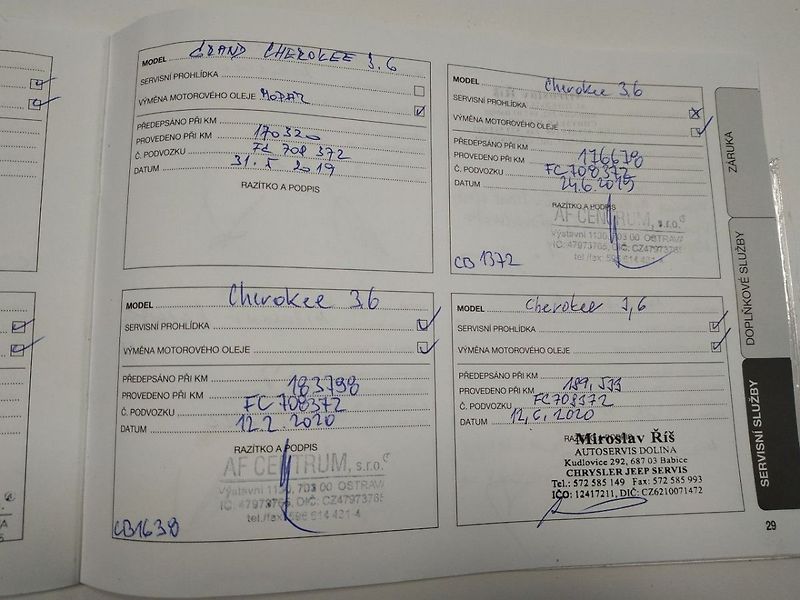 MODEL GRAND CHEROKEE 3.6
SERVISNÍ PROHLÍDKA
VÝMĚNA MOTOROVÉHO OLEJE MOPAR
PŘEDEPSÁNO PŘI KM
PROVEDENO PŘI KM 170320
Č. PODVOZKU FC 708 372
DATUM 31. 5 2019
RAZÍTKO A PODPIS
MODEL Cherokee 3.6
SERVISNÍ PROHLÍDKA
VÝMĚNA MOTOROVÉHO OLEJE
PŘEDEPSÁNO PŘI KM
PROVEDENO PŘI KM 176678
Č. PODVOZKU FC708372
DATUM 24.6.2019
RAZÍTKO A PODPIS
AF CENTRUM, s.r.o.
Výstavní 1130, 703 00 OSTRAVA
IČ: 47973765, DIČ: CZ4797376
tel./fax: 596 614 431-4
CB 1372
MODEL Cherokee 3.6
SERVISNÍ PROHLÍDKA
VÝMĚNA MOTOROVÉHO OLEJE
PŘEDEPSÁNO PŘI KM
PROVEDENO PŘI KM 183798
Č. PODVOZKU FC 708372
DATUM 12.2. 2020
RAZÍTKO A PODPIS
AF CENTRUM, s.r.o.
Výstavní 1130, 703 00 OSTRAVA
IČ: 47973765, DIČ: CZ47973765
tel./fax: 596 614 431-4
CB1638
MODEL Cherokee 3,6
SERVISNÍ PROHLÍDKA
VÝMĚNA MOTOROVÉHO OLEJE
PŘEDEPSÁNO PŘI KM
PROVEDENO PŘI KM
Č. PODVOZKU FC708372
DATUM 12, 6, 2020
Miroslav Říš
AUTOSERVIS DOLINA
Kudlovice 292, 687 03 Babice
CHRYSLER JEEP SERVIS
Tel.: 572 585 149 Fax: 572 585 993
IČO: 12417211, DIČ: CZ6210071472
ZÁRUKA
DOPLŇKOVÉ SLUŽBY
SERVISNÍ SLUŽBY
29